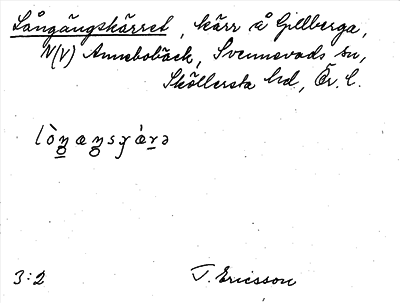 Långängskärret, kärr å Gillberga,
N(V) Annebobäck, Svennevads sn,
Sköllersta hd, Ör. l.
lòŋæŋsɣæ̀rə
3:2 T. Ericsson